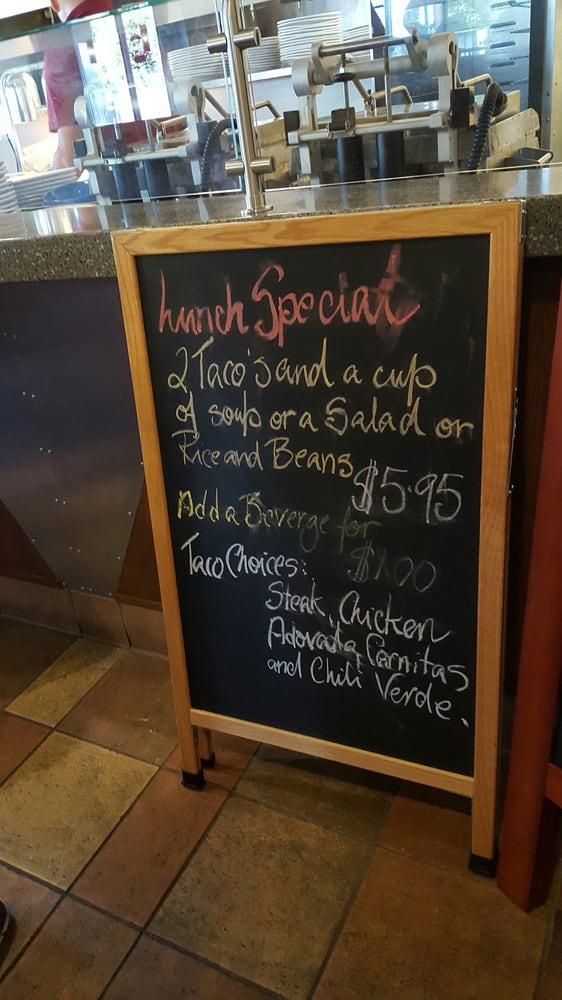 Lunch Special
2 Taco's and a cup
of soup or a Salad or
Rice and Beans
$5.95
Add a Beverge for
$1.00
Taco Choices:
Steak, Chicken
Adovada, Carnitas
and Chili Verde.